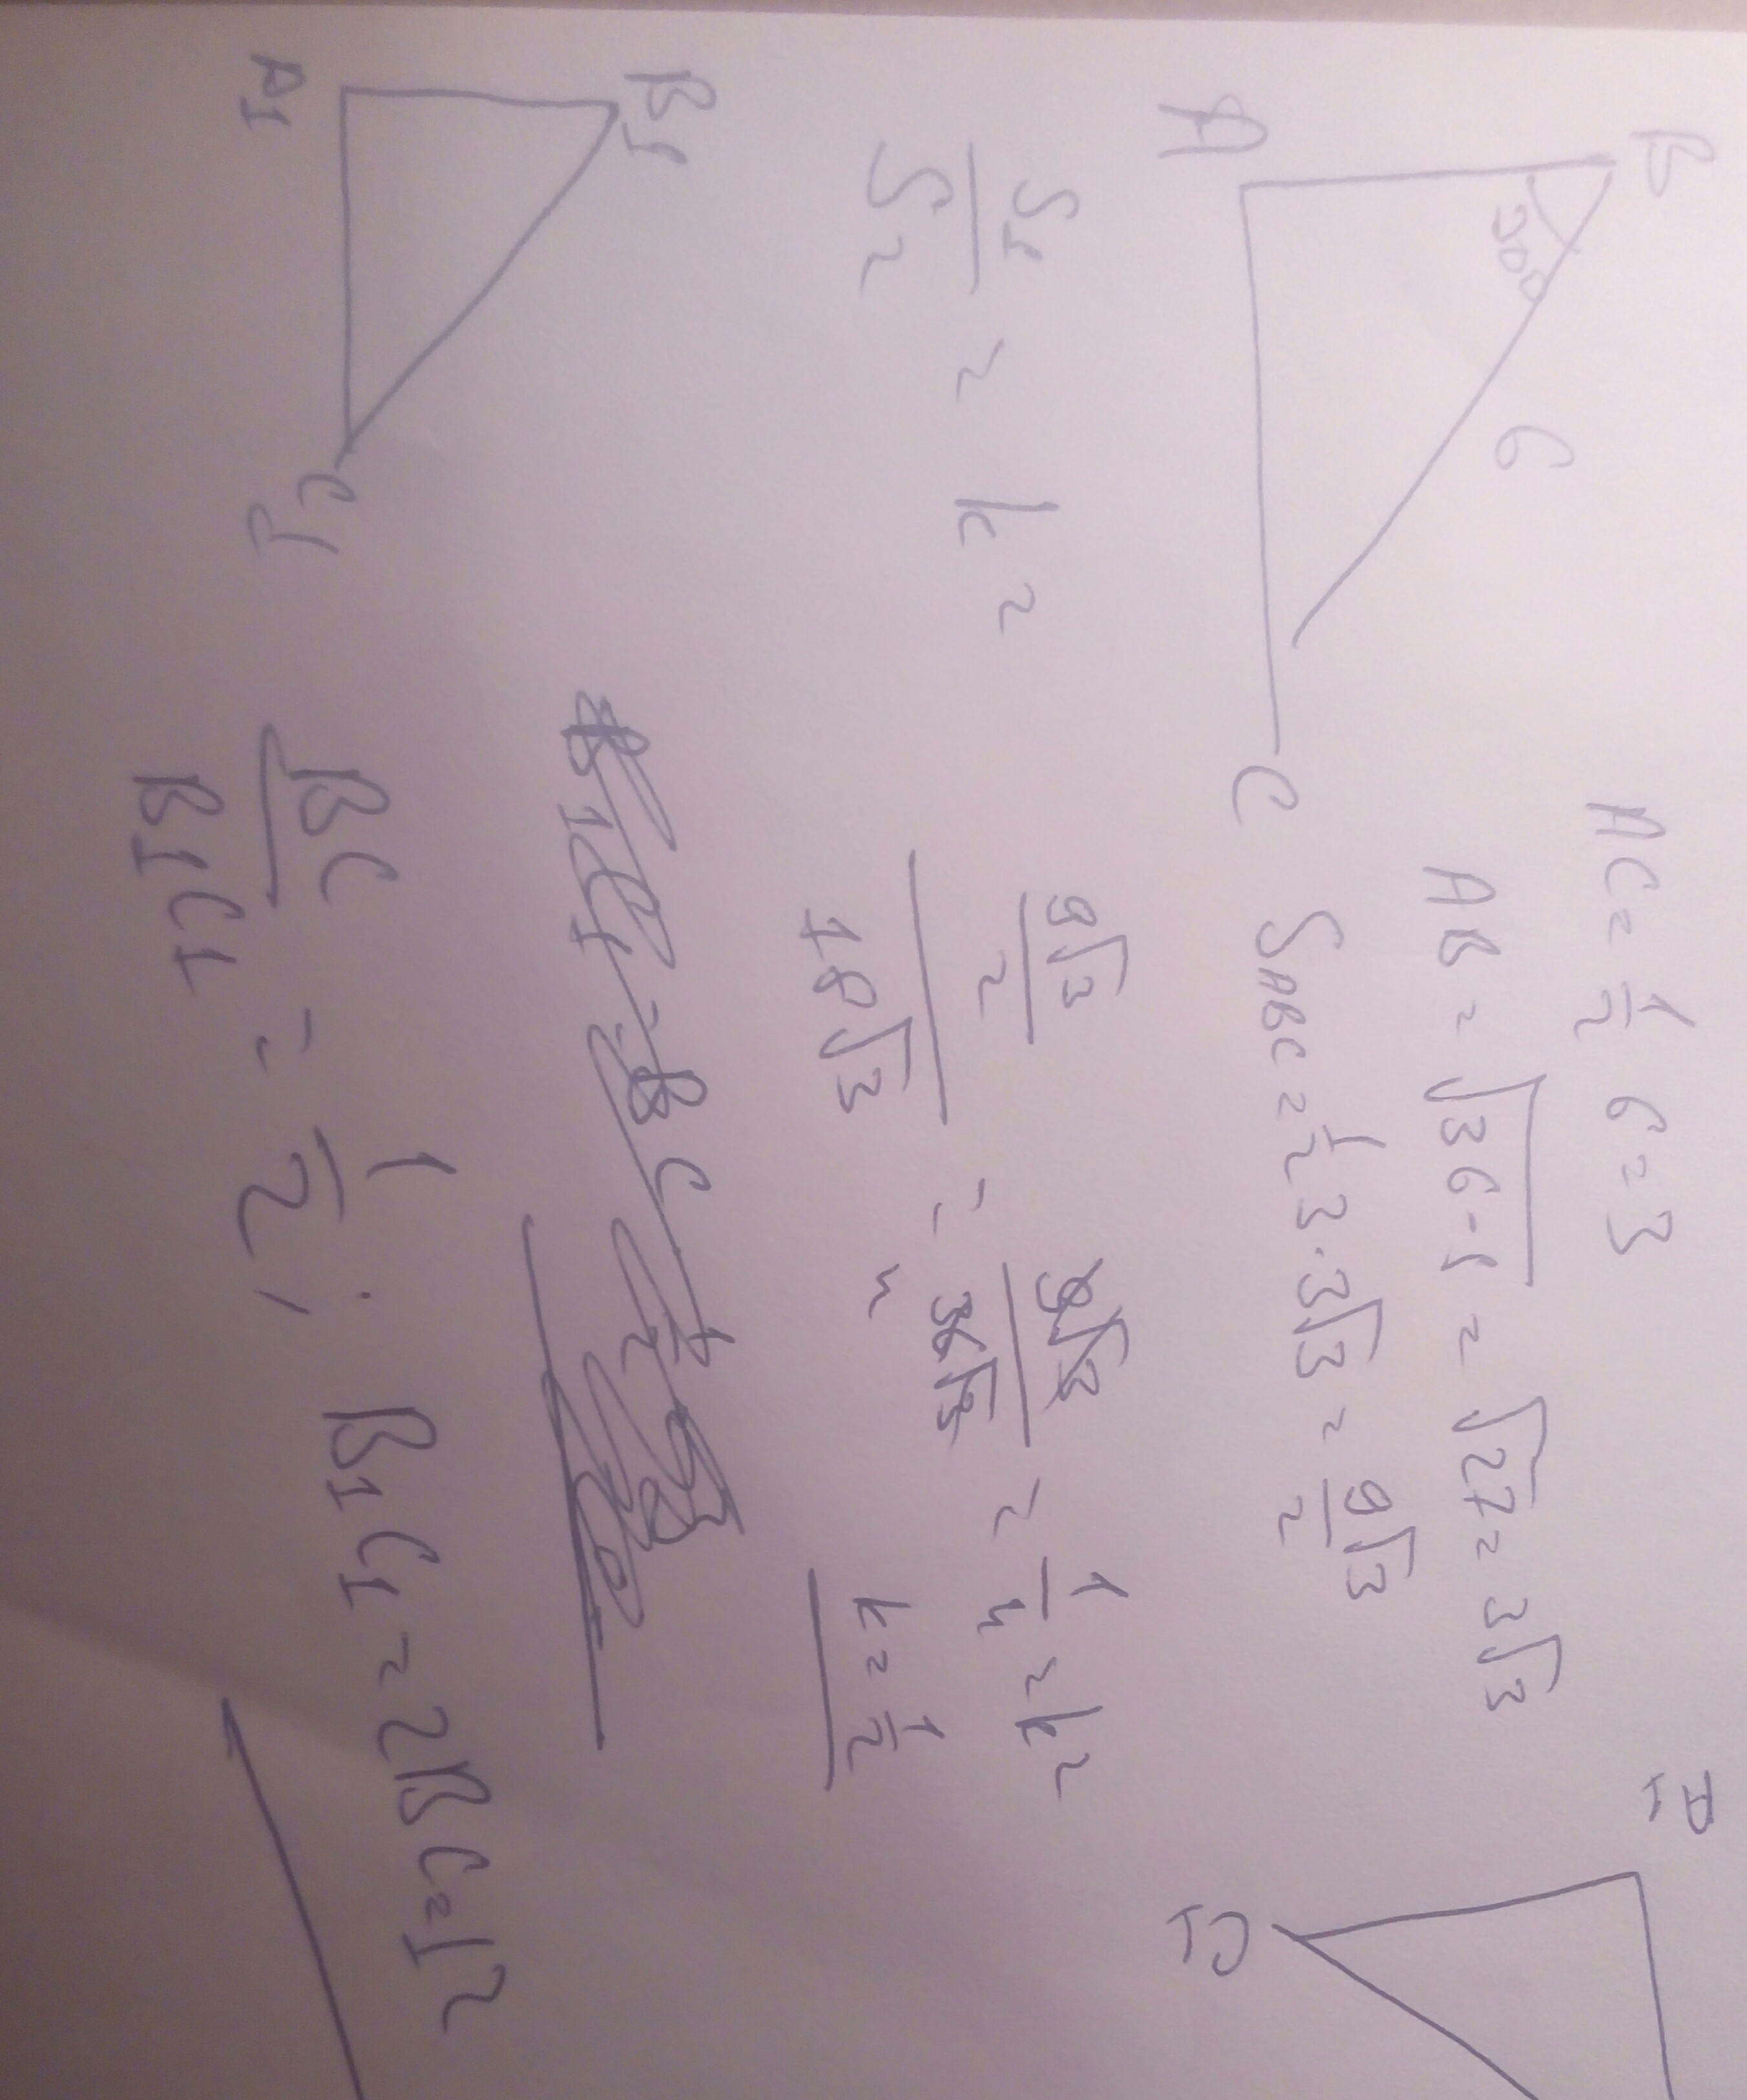 B
30°
6
A
C
AC = 1/2 6 = 3
AB = √36-9 = √27 = 3√3
S_ABC = 1/2 3 · 3√3 = 9√3/2
A1
C1
S1/S2 = k²
(9√3/2)/(18√3) = 9√3/36√3 = 1/4 = k²
4
k = 1/2
B1
A1
C1
BC/B1C1 = 1/2; B1C1 = 2BC = 12